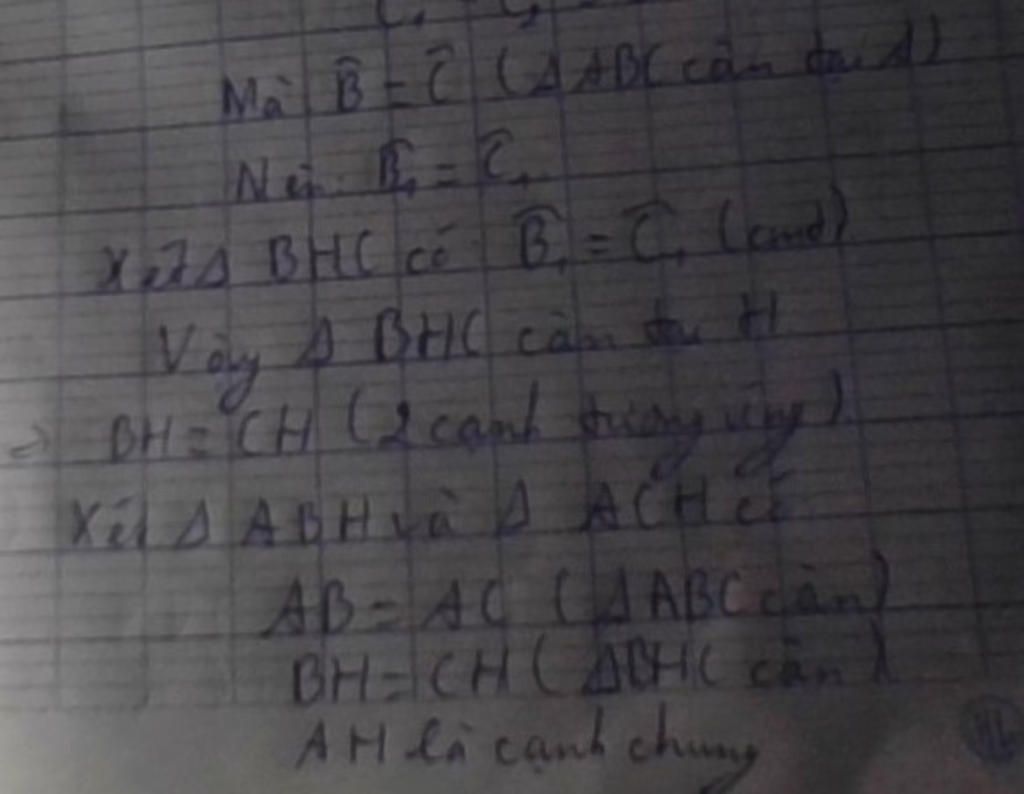 Mà B̂ = Ĉ (Δ ABC cân tại A)
Nên B̂₁ = Ĉ₁
Xét Δ BHC có B̂₁ = Ĉ₁ (cmt)
Vậy Δ BHC cân tại H
=> BH = CH (2 cạnh tương ứng)
Xét Δ ABH và Δ ACH có
AB = AC (ΔABC cân)
BH = CH (ΔBHC cân)
AH là cạnh chung